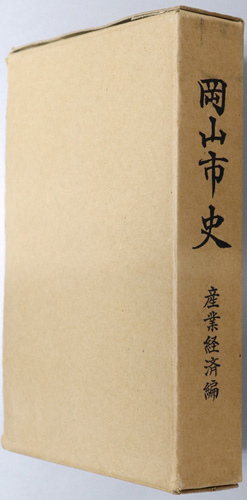 岡山市史
産業経済編